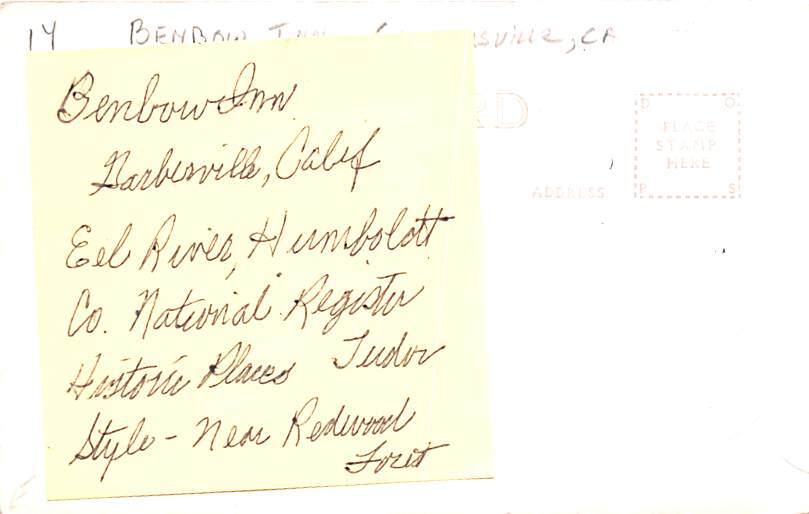 14 BENBOW INN SVILLE, CA
Benbow Inn
Garberville, Calif
Eel River, Humboldtt
Co. National Register
Historic Places Tudor
Style - Near Redwood
Forest
RD
ADDRESS
D O
PLACE
STAMP
HERE
P S